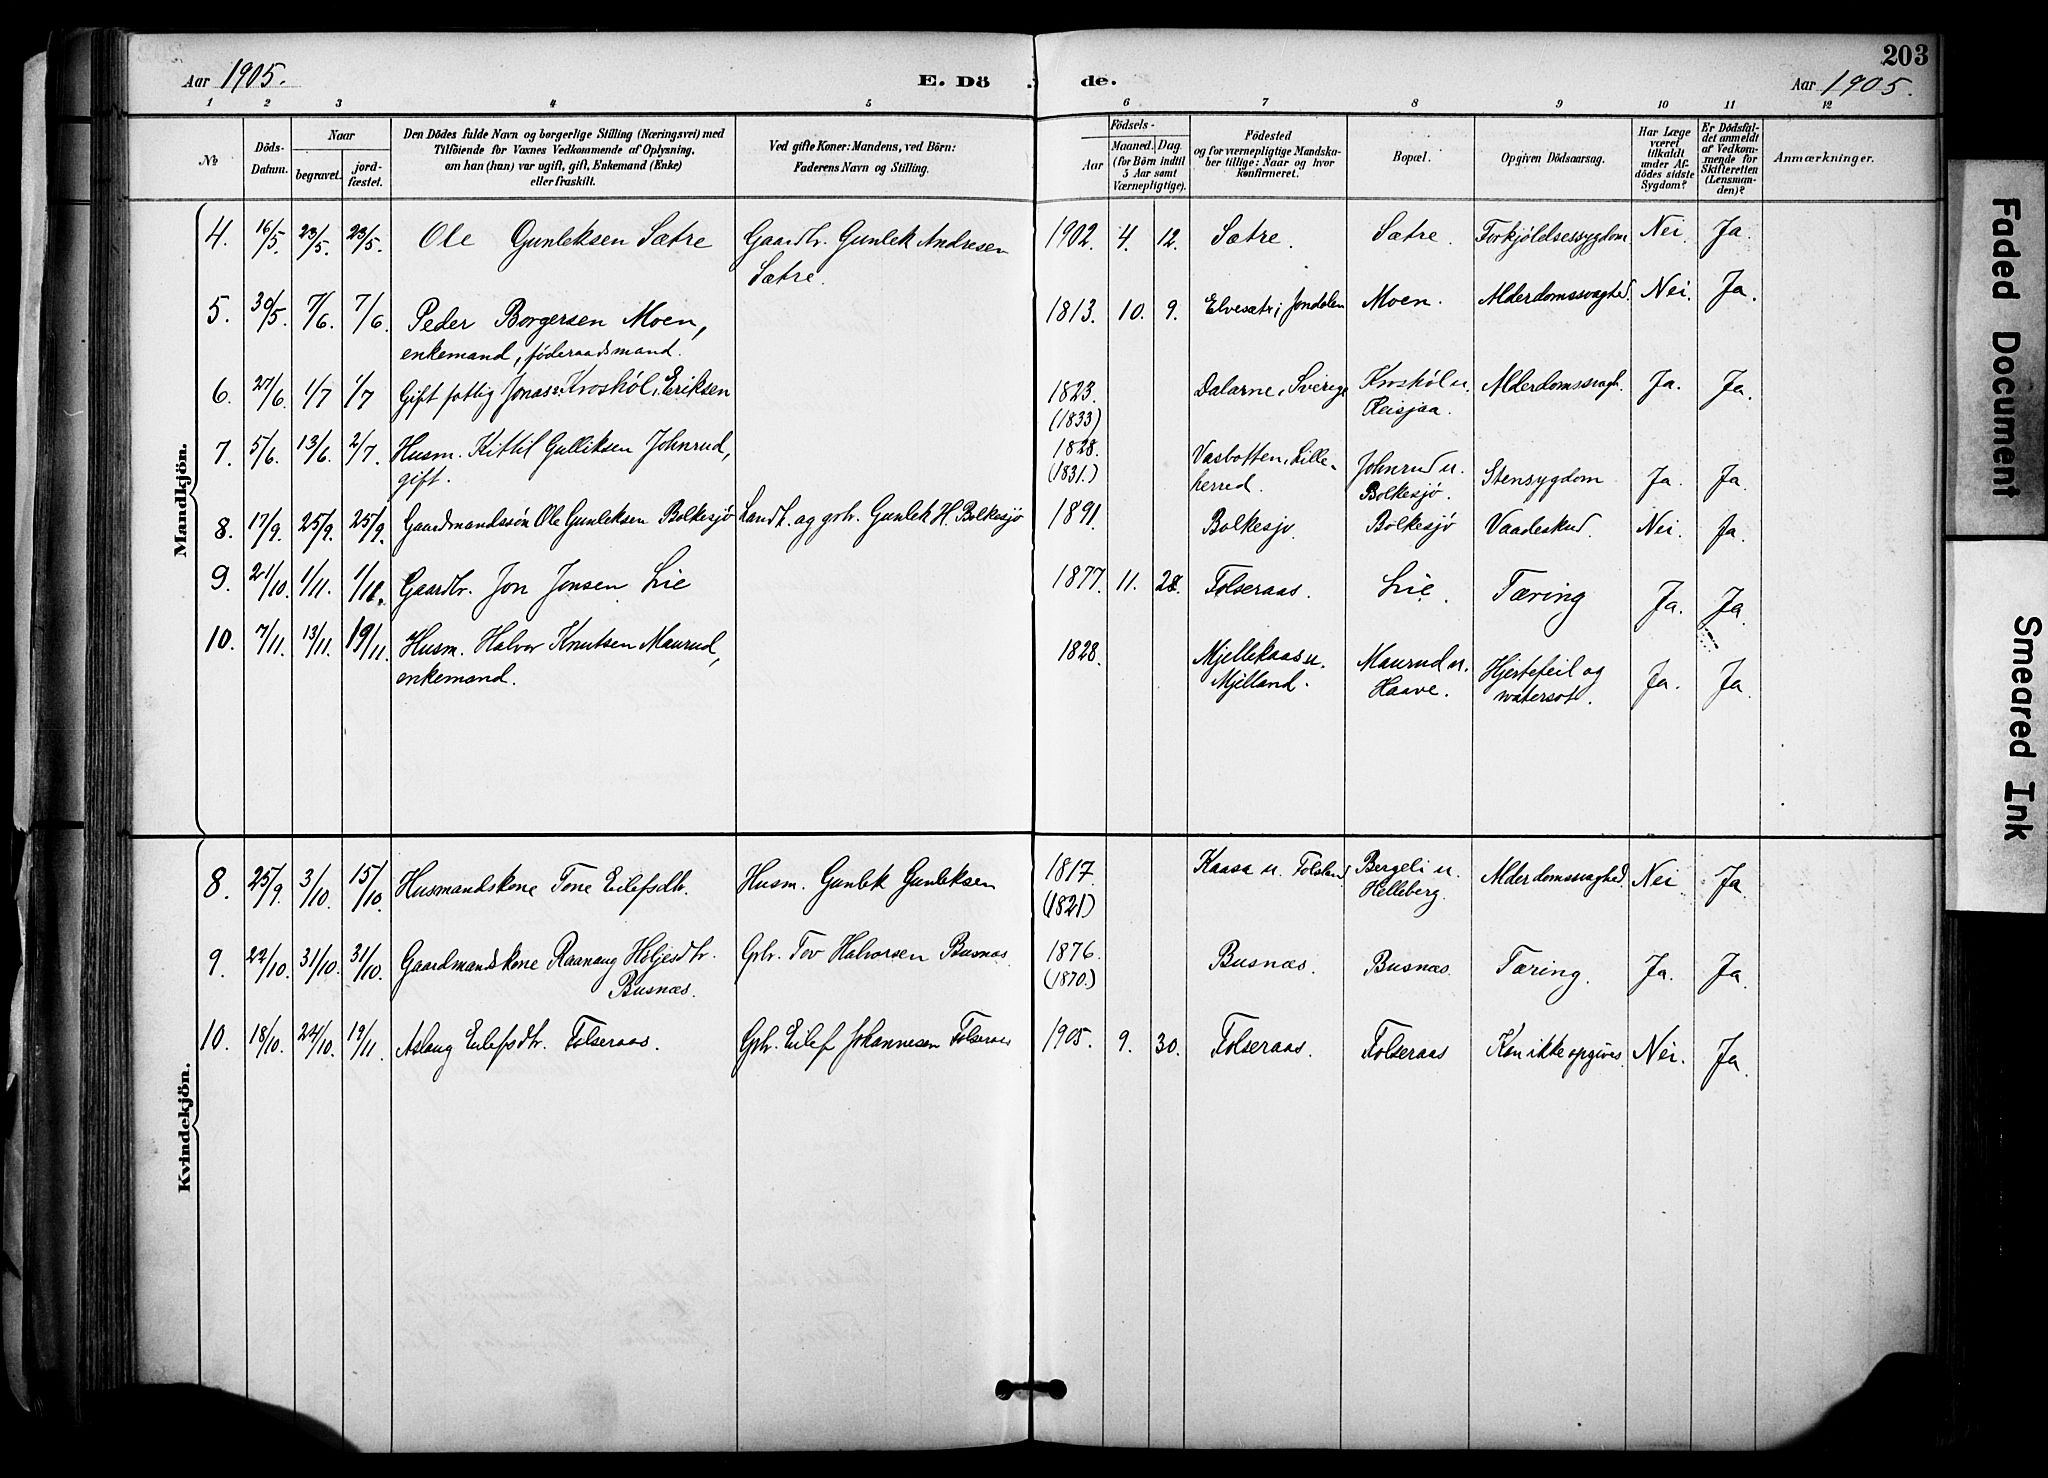 203
Aar 1905.
E. Dö de.
Aar 1905.
1 2 3 4 5 6 7 8 9 10 11 12
No
Döds-Datum.
Naar
begravet.
jord-fæstet.
Den Dödes fulde Navn og borgerlige Stilling (Næringsvei) med
Tilföiende for Voxnes Vedkommende af Oplysning,
om han (hun) var ugift, gift, Enkemand (Enke)
eller fraskilt.
Ved gifte Koner: Mandens, ved Börn:
Faderens Navn og Stilling.
Födsels-
Aar
Maaned. Dag
(for Börn indtil
5 Aar samt
Værnepligtige).
Födested
og for værnepligtige Mandska-
ber tillige: Naar og hvor
Konfirmeret.
Bopæl.
Opgiven Dödsaarsag.
Har Læge
været
tilkaldt
under Af-
dödes sidste
Sygdom?
Er Dödsfal-
det anmeldt
af Vedkom-
mende for
Skifteretten
(Lensman-
den)?
Anmærkninger.
Mandkjön.
4. 16/5. 23/5. 23/5. Ole Gunleksen Sætre Gaardbr. Gunlek Andresen 1902. 4. 12. Sætre. Sætre. Forkjöldelsessygdom Nei. Ja.
Sætre.
5. 30/5. 7/6. 7/6. Peder Borgersen Moen, 1813. 10. 9. Elvesætr i Jondalen Moen. Alderdomssvaghed. Nei. Ja.
enkemand, föderaadsmand.
6. 27/6. 1/7 1/7 Gift fattig Jonas Eriksen 1823. Dalarne, Sverige Kroshöl u. Alderdomssvagh. Ja. Ja.
(1833) Reisjaa.
7. 5/6. 13/6. 2/7. Husm. Kittil Gulliksen Johnrud, 1828. Vasbotten, Lille- Johnrud u. Stensygdom Ja. Ja.
gift. (1831.) herred. Bolkesjö.
8. 17/9. 25/9. 25/9. Gaardmandssön Ole Gunleksen Bolkesjö Landh. og gbr. Gunlek H. Bolkesjö 1891. Bolkesjö. Bolkesjö Vaadeskud. Nei. Ja.
9. 21/10. 1/11. 1/11. Gaardbr. Jon Jonsen Lie 1877. 11. 28. Folseraas. Lie. Tæring Ja. Ja.
10. 7/11. 13/11. 19/11. Husm. Halvor Knutsen Maurud, 1828. Mjellekaas u. Maurud u. Hjertefeil og Ja. Ja.
enkemand. Mjelland. Haave. watersot.
Kvindekjön.
8. 25/9. 3/10. 15/10. Husmandskone Tone Eilefsdtr. Husm. Gunlek Gunleksen 1817. Kaasa u. Folsland Bergeli u. Alderdomssvaghed. Nei Ja.
(1821) Helleberg.
9. 22/10. 31/10. 31/10. Gaardmandskone Raanaug Höljesdtr. Gbr. Tov Halvorsen Busnæs. 1876. Busnæs. Busnæs. Tæring. Ja. Ja.
Busnæs. (1870.)
10. 18/10. 24/10. 19/11. Aslaug Eilefsdtr. Folseraas. Gbr. Eilef Johannesen Folseraas 1905. 9. 30. Folseraas. Folseraas Kan ikke opgives Nei. Ja.
Faded Document
Smeared Ink